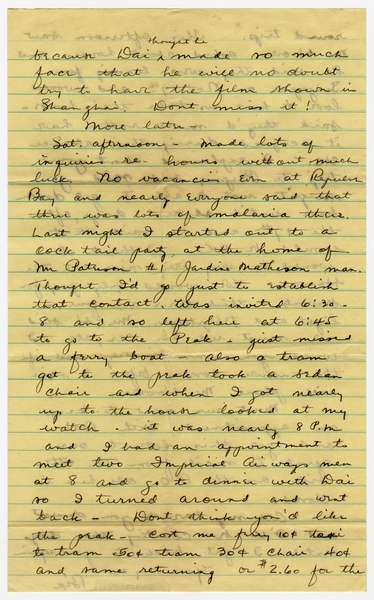 thought he
because Dai ^ made so much
face that he will no doubt
try to have the film shown in
Shanghai. Dont miss it!
More later -
Sat. afternoon - made lots of
inquiries re- hours without much
luck. No vacancies even at Repulse
Bay and nearly everyone said that
there was lots of malaria there.
Last night I started out to a
cock tail party at the home of
Mr Paterson #1 Jardine Matheson man.
Thought I'd go just to establish
that contact. Was invited 6:30-
8 and so left here at 6:45
to go to the Peak - just missed
a ferry boat - also a tram
got to the peak took a sedan
chair and when I got nearly
up to the house looked at my
watch. it was nearly 8 P.M
and I had an appointment to
meet two Imperial Airways men
at 8 and go to dinner with Dai
so I turned around and went
back - Dont think you'd like
the peak - Cost me ferry 10¢ taxi
to tram 20¢ tram 30¢ chair 40¢
and same returning or $2.60 for the